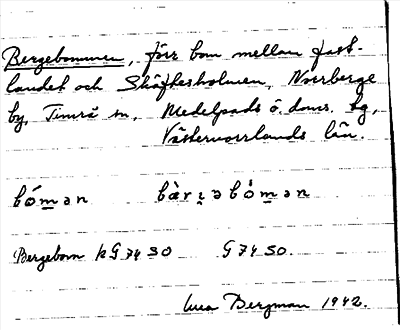 Bergebommen, förr bom mellan fast-
landet och Skäftesholmen, Norrberge
by, Timrå sn, Medelpads ö. doms. tg,
Västernorrlands län.
bómən bàri̯əbòmən
Bergebom kG 74 SO G 74 SO.
Bergman 1942.